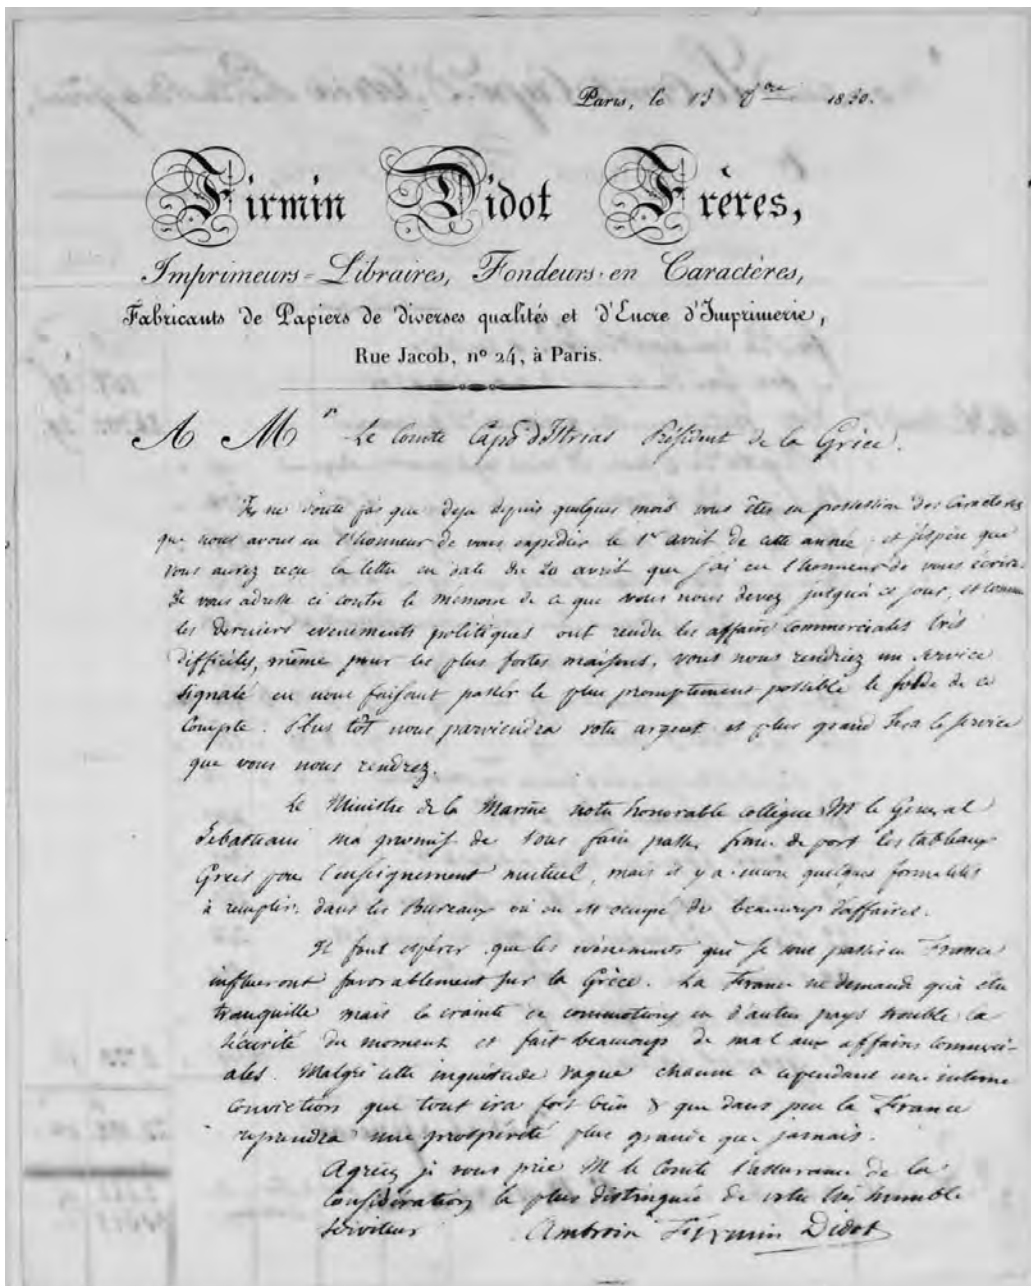 Paris, le 13 8bre 1830.
Firmin Didot Frères,
Imprimeurs=Libraires, Fondeurs en Caractères,
Fabricants de Papiers de diverses qualités et d'Encre d'Imprimerie,
Rue Jacob, nº 24, à Paris.
A Mr Le Comte Capo d'Istrias Président de la Grèce.
Je ne doute pas que deja depuis quelques mois vous êtes en possession des Caractères
que nous avons eu l'honneur de vous expédier le 1er avril de cette année et j'espère que
vous aurez reçu la lettre en date du 20 avril que j'ai eu l'honneur de vous écrire.
Je vous adresse ci contre le mémoire de ce que vous nous devez jusqu'à ce jour, et comme
les derniers evenements politiques ont rendu les affaires commerciales très
difficiles, même pour les plus fortes maisons, vous nous rendriez un service
signalé en nous faisant passer le plus promptement possible le solde de ce
Compte. Plus tôt nous parviendra votre argent et plus grand sera le service
que vous nous rendrez.
Le Ministre de la Marine notre honorable collègue M le General
Sebastiani m'a promis de vous faire passer franc de port les tableaux
Grecs pour l'enseignement mutuel, mais il y a encore quelques formalités
à remplir dans les Bureaux où on est occupé de beaucoup d'affaires.
Il faut espérer que les evènements qui se sont passés en France
influeront favorablement sur la Grèce. La France ne demande qu'à être
tranquille mais la crainte de commotions en d'autres pays trouble la
sécurité du moment et fait beaucoup de mal aux affaires commerci-
ales. Malgré cette inquiétude vague chacun a cependant une intime
conviction que tout ira fort bien & que dans peu la France
reprendra une prospérité plus grande que jamais.
Agréez je vous prie M le Comte l'assurance de la
Considération la plus distinguée de votre très humble
serviteur Ambroise Firmin Didot